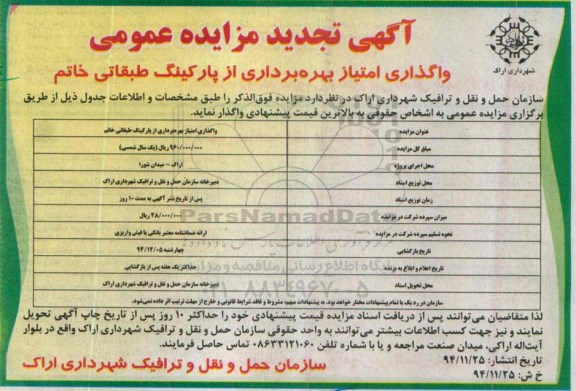 آگهی تجدید مزایده عمومی
شهرداری اراک
واگذاری امتیاز بهره‌برداری از پارکینگ طبقاتی خاتم
سازمان حمل و نقل و ترافیک شهرداری اراک در نظر دارد مزایده فوق‌الذکر را طبق مشخصات و اطلاعات جدول ذیل از طریق
برگزاری مزایده عمومی به اشخاص حقوقی به بالاترین قیمت پیشنهادی واگذار نماید.
عنوان مزایده واگذاری امتیاز بهره‌برداری از پارکینگ طبقاتی خاتم
مبلغ کل مزایده ۹۶۰/۰۰۰/۰۰۰ ریال (یک سال شمسی)
محل اجرای پروژه اراک - میدان شورا
محل توزیع اسناد دبیرخانه سازمان حمل و نقل و ترافیک شهرداری اراک
زمان توزیع اسناد پس از تاریخ نشر آگهی به مدت ۱۰ روز
میزان سپرده شرکت در مزایده ۴۸/۰۰۰/۰۰۰ ریال
نحوه تسلیم سپرده شرکت در مزایده ارائه ضمانتنامه معتبر بانکی یا فیش واریزی
تاریخ بازگشایی چهارشنبه ۹۴/۱۲/۰۵
تاریخ اعلام و ابلاغ به برنده حداکثر یک هفته پس از بازگشایی
محل تحویل اسناد دبیرخانه سازمان حمل و نقل و ترافیک شهرداری اراک
سازمان در رد یک یا تمام پیشنهادات مختار خواهد بود. به پیشنهادات مبهم، مشروط و فاقد شرایط قانونی و خارج از مهلت ترتیب اثر داده نمی‌شود.
لذا متقاضیان می‌توانند پس از دریافت اسناد مزایده قیمت پیشنهادی خود را حداکثر ۱۰ روز پس از تاریخ چاپ آگهی تحویل
نمایند و نیز جهت کسب اطلاعات بیشتر می‌توانند به واحد حقوقی سازمان حمل و نقل و ترافیک شهرداری اراک واقع در بلوار
آیت‌اله اراکی، میدان صنعت مراجعه و یا با شماره تلفن ۰۸۶۳۳۱۲۱۰۶۰ تماس حاصل فرمایند.
تاریخ انتشار: ۹۴/۱۱/۲۵
خ ش: ۹۴/۱۱/۲۵
سازمان حمل و نقل و ترافیک شهرداری اراک
ParsNamadData
پایگاه اطلاع رسانی مناقصه و مزایده
۸۸۳۴۹۶۷۰-۵